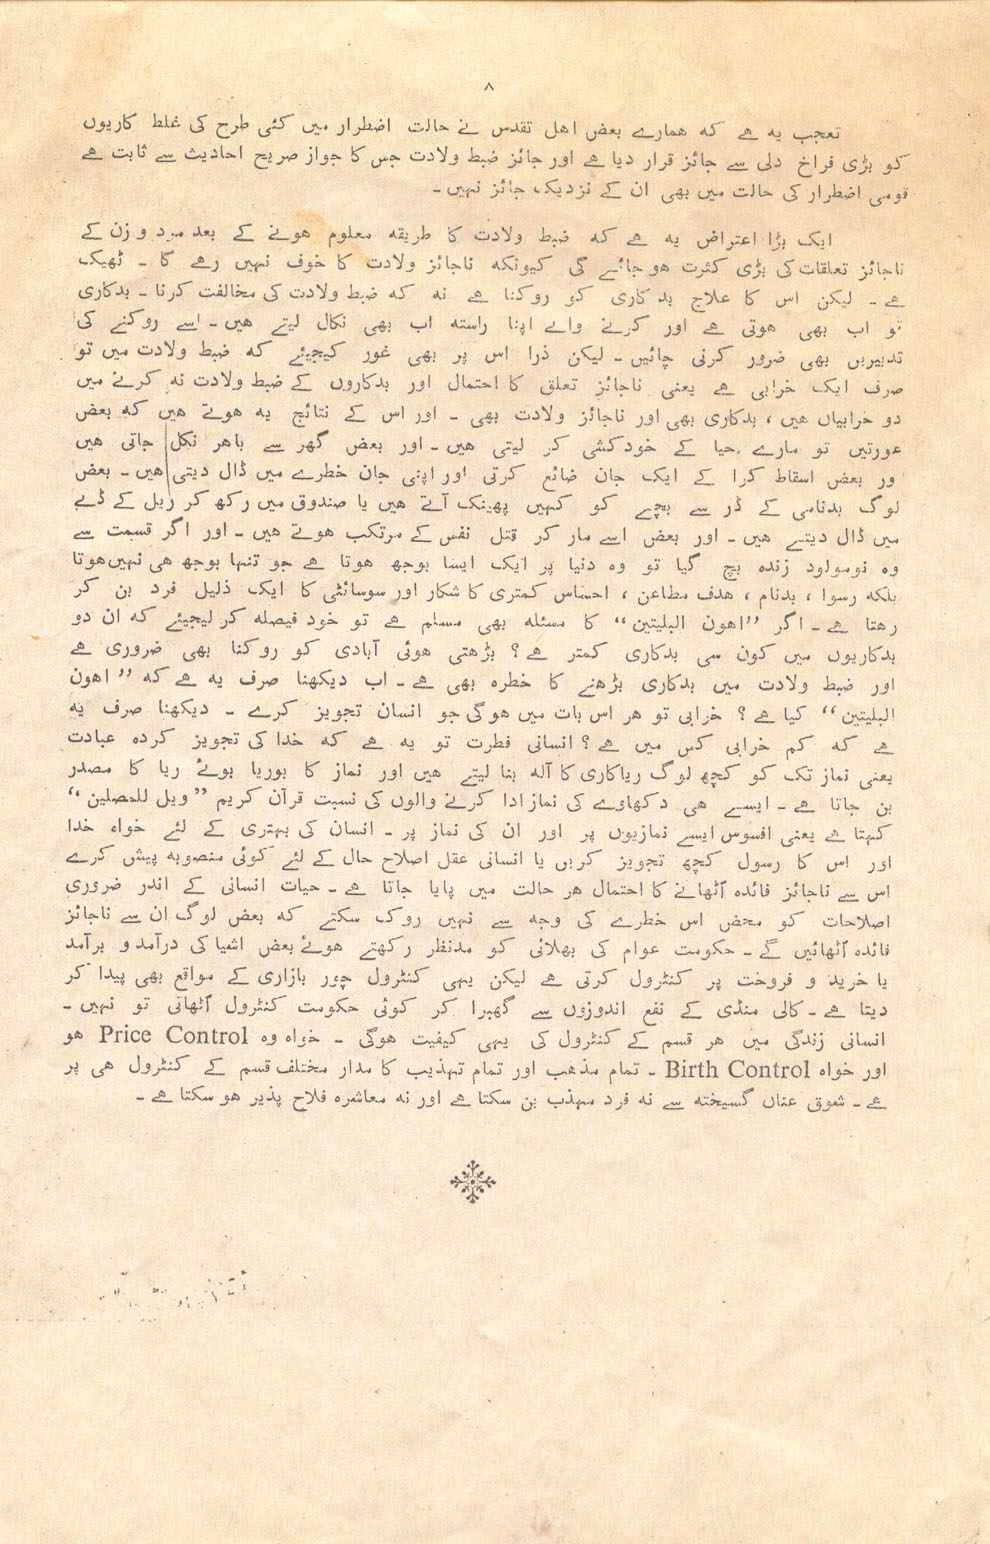 ۸
تعجب یہ ہے کہ ہمارے بعض اہل تقدس نے حالت اضطرار میں کئی طرح کی غلط کاریوں
کو بڑی فراخ دلی سے جائز قرار دیا ہے اور جائز ضبط ولادت جس کا جواز صریح احادیث سے ثابت ہے
قومی اضطرار کی حالت میں بھی ان کے نزدیک جائز نہیں ۔
ایک بڑا اعتراض یہ ہے کہ ضبط ولادت کا طریقہ معلوم ہونے کے بعد مرد و زن کے
ناجائز تعلقات کی بڑی کثرت ہو جائے گی کیونکہ ناجائز ولادت کا خوف نہیں رہے گا ۔ ٹھیک
ہے ۔ لیکن اس کا علاج بدکاری کو روکنا ہے نہ کہ ضبط ولادت کی مخالفت کرنا ۔ بدکاری
تو اب بھی ہوتی ہے اور کرنے والے اپنا راستہ اب بھی نکال لیتے ہیں ۔ اسے روکنے کی
تدبیریں بھی ضرور کرنی چائیں ۔ لیکن ذرا اس پر بھی غور کیجیئے کہ ضبط ولادت میں تو
صرف ایک خرابی ہے یعنی ناجائز تعلق کا احتمال اور بدکاروں کے ضبط ولادت نہ کرنے میں
دو خرابیاں ہیں ، بدکاری بھی اور ناجائز ولادت بھی ۔ اور اس کے نتائج یہ ہوتے ہیں کہ بعض
عورتیں تو مارے حیا کے خودکشی کر لیتی ہیں ۔ اور بعض گھر سے باہر نکل جاتی ہیں
ور بعض اسقاط کرا کے ایک جان ضائع کرتی اور اپنی جان خطرے میں ڈال دیتی ہیں ۔ بعض
لوگ بدنامی کے ڈر سے بچے کو کہیں پھینک آتے ہیں یا صندوق میں رکھ کر ریل کے ڈبے
میں ڈال دیتے ہیں ۔ اور بعض اسے مار کر قتل نفس کے مرتکب ہوتے ہیں ۔ اور اگر قسمت سے
وہ نومولود زندہ بچ گیا تو وہ دنیا پر ایک ایسا بوجھ ہوتا ہے جو تنہا بوجھ ہی نہیں ہوتا
بلکہ رسوا ، بدنام ، ہدف مطاعن ، احساس کمتری کا شکار اور سوسائٹی کا ایک ذلیل فرد بن کر
رہتا ہے ۔ اگر ”اہون البلیتین“ کا مسئلہ بھی مسلم ہے تو خود فیصلہ کر لیجیئے کہ ان دو
بدکاریوں میں کون سی بدکاری کمتر ہے ؟ بڑھتی ہوئی آبادی کو روکنا بھی ضروری ہے
اور ضبط ولادت میں بدکاری بڑھنے کا خطرہ بھی ہے ۔ اب دیکھنا صرف یہ ہے کہ ”اہون
البلیتین“ کیا ہے ؟ خرابی تو ہر اس بات میں ہوگی جو انسان تجویز کرے ۔ دیکھنا صرف یہ
ہے کہ کم خرابی کس میں ہے ؟ انسانی فطرت تو یہ ہے کہ خدا کی تجویز کردہ عبادت
یعنی نماز تک کو کچھ لوگ ریاکاری کا آلہ بنا لیتے ہیں اور نماز کا بوریا بوئے ریا کا مصدر
بن جاتا ہے ۔ ایسے ہی دکھاوے کی نماز ادا کرنے والوں کی نسبت قرآن کریم ”ویل للمصلین“
کہتا ہے یعنی افسوس ایسے نمازیوں پر اور ان کی نماز پر ۔ انسان کی بہتری کے لئے خواہ خدا
اور اس کا رسول کچھ تجویز کریں یا انسانی عقل اصلاح حال کے لئے کوئی منصوبہ پیش کرے
اس سے ناجائز فائدہ اٹھانے کا احتمال ہر حالت میں پایا جاتا ہے ۔ حیات انسانی کے اندر ضروری
اصلاحات کو محض اس خطرے کی وجہ سے نہیں روک سکتے کہ بعض لوگ ان سے ناجائز
فائدہ اٹھائیں گے ۔ حکومت عوام کی بھلائی کو مدنظر رکھتے ہوئے بعض اشیا کی درآمد و برآمد
یا خرید و فروخت پر کنٹرول کرتی ہے لیکن یہی کنٹرول چور بازاری کے مواقع بھی پیدا کر
دیتا ہے ۔ کالی منڈی کے نفع اندوزوں سے گھبرا کر کوئی حکومت کنٹرول اٹھاتی تو نہیں ۔
انسانی زندگی میں ہر قسم کے کنٹرول کی یہی کیفیت ہوگی ۔ خواہ وہ Price Control ہو
اور خواہ Birth Control ۔ تمام مذہب اور تمام تہذیب کا مدار مختلف قسم کے کنٹرول ہی پر
ہے ۔ شوق عناں گسیختہ سے نہ فرد مہذب بن سکتا ہے اور نہ معاشرہ فلاح پذیر ہو سکتا ہے ۔